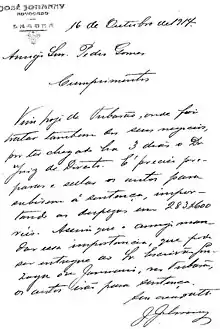 JOSÉ JOHANNY
ADVOGADO
LAGUNA
16 de Outubro de 1917.
Amigo Snr. Pedro Gomes
Cumprimentos
Vim hoje de Tubarão, onde fui
tratar tambem do seu negocio,
por ter chegado ha 3 dias o Dr.
Juiz de Direito. É preciso pre-
parar e sellar os autos para
subirem á sentença, impor-
tando as despezas em 283$600
reis. Assim que o amigo man-
dar essa importancia, que pode
ser entregue ao Sr.
os autos irão para sentença.
J. Johanny